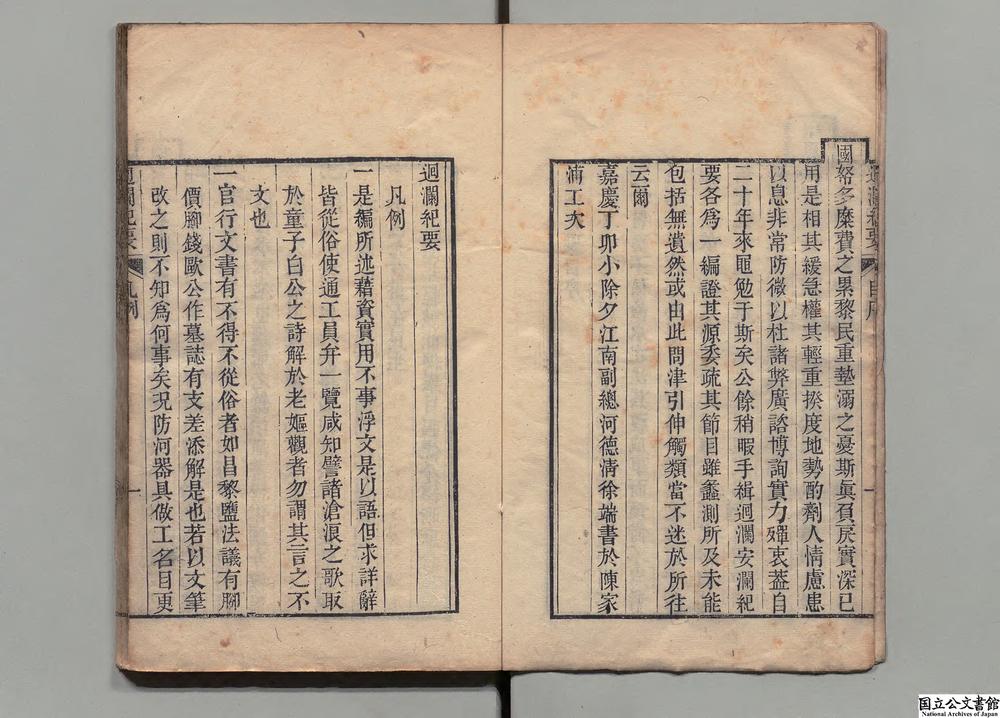 國帑多糜費之累黎民重墊溺之憂斯眞負戾實深已
用是相其緩急權其輕重揆度地勢酌劑人情慮患
以息非常防微以杜諸弊廣諮博詢實力殫衷蓋自
二十年來黽勉于斯矣公餘稍暇手緝迴瀾安瀾紀
要各爲一編證其源委疏其節目雖蠡測所及未能
包括無遺然或由此問津引伸觸類當不迷於所往
云爾
嘉慶丁卯小除夕江南副總河德淸徐端書於陳家
浦工次
迴瀾紀要
凡例
一是編所述藉資實用不事浮文是以語但求詳辭
皆從俗使通工員弁一覽咸知譬諸滄浪之歌取
於童子白公之詩解於老嫗觀者勿謂其言之不
文也
一官行文書有不得不從俗者如昌黎鹽法議有脚
價脚錢歐公作墓誌有支差添解是也若以文筆
改之則不知爲何事矣况防河器具做工名目更
迴瀾紀要 凡例 一
国立公文書館
National Archives of Japan